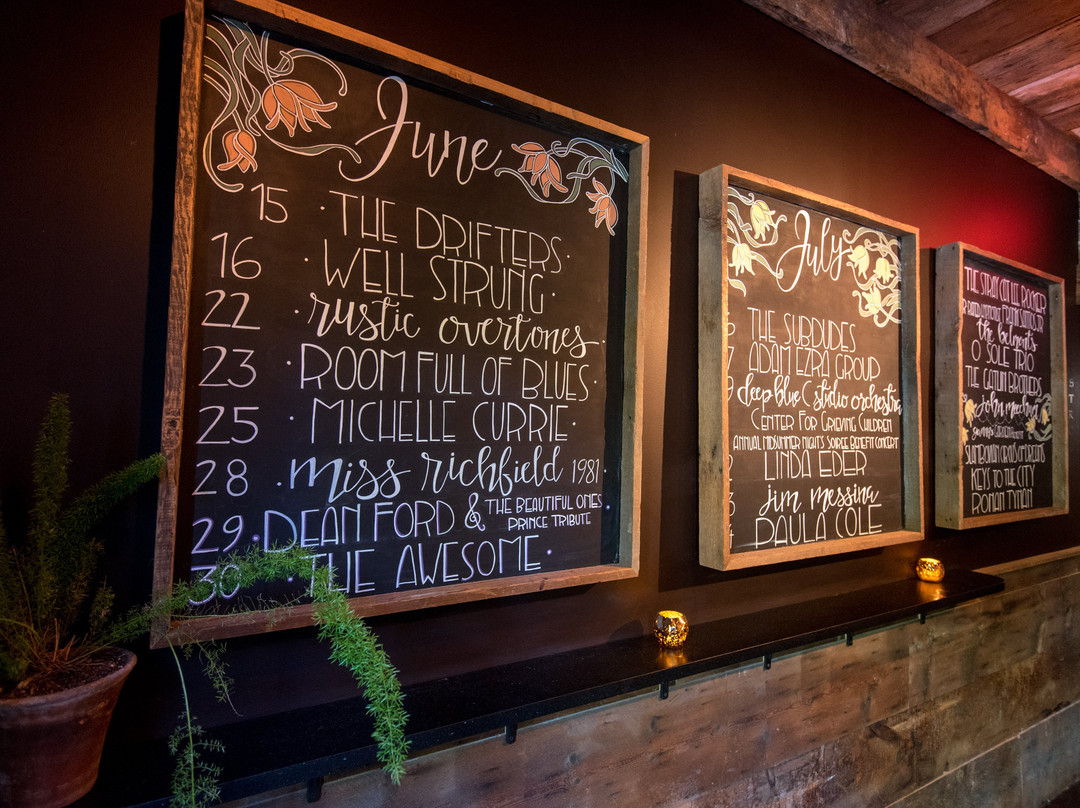 June
15 · THE DRIFTERS ·
16 · WELL STRUNG ·
22 · rustic overtones ·
23 · ROOM FULL OF BLUES ·
25 · MICHELLE CURRIE ·
28 · miss richfield 1981
29 · DEAN FORD & THE BEAUTIFUL ONES
PRINCE TRIBUTE
30 · THE AWESOME ·
July
THE SUBDUDES
7 ADAM EZRA GROUP
9 deep blue C studio orchestra
CENTER FOR GRIEVING CHILDREN
ANNUAL MIDSUMMER NIGHT'S SOIREE BENEFIT CONCERT
LINDA EDER
jim messina
PAULA COLE
THE STRAY CAT LEE ROCKER
the belmonts
O SOLE TRIO
THE CATLIN BROTHERS
john
KEYS TO THE CITY
RONAN TYNAN